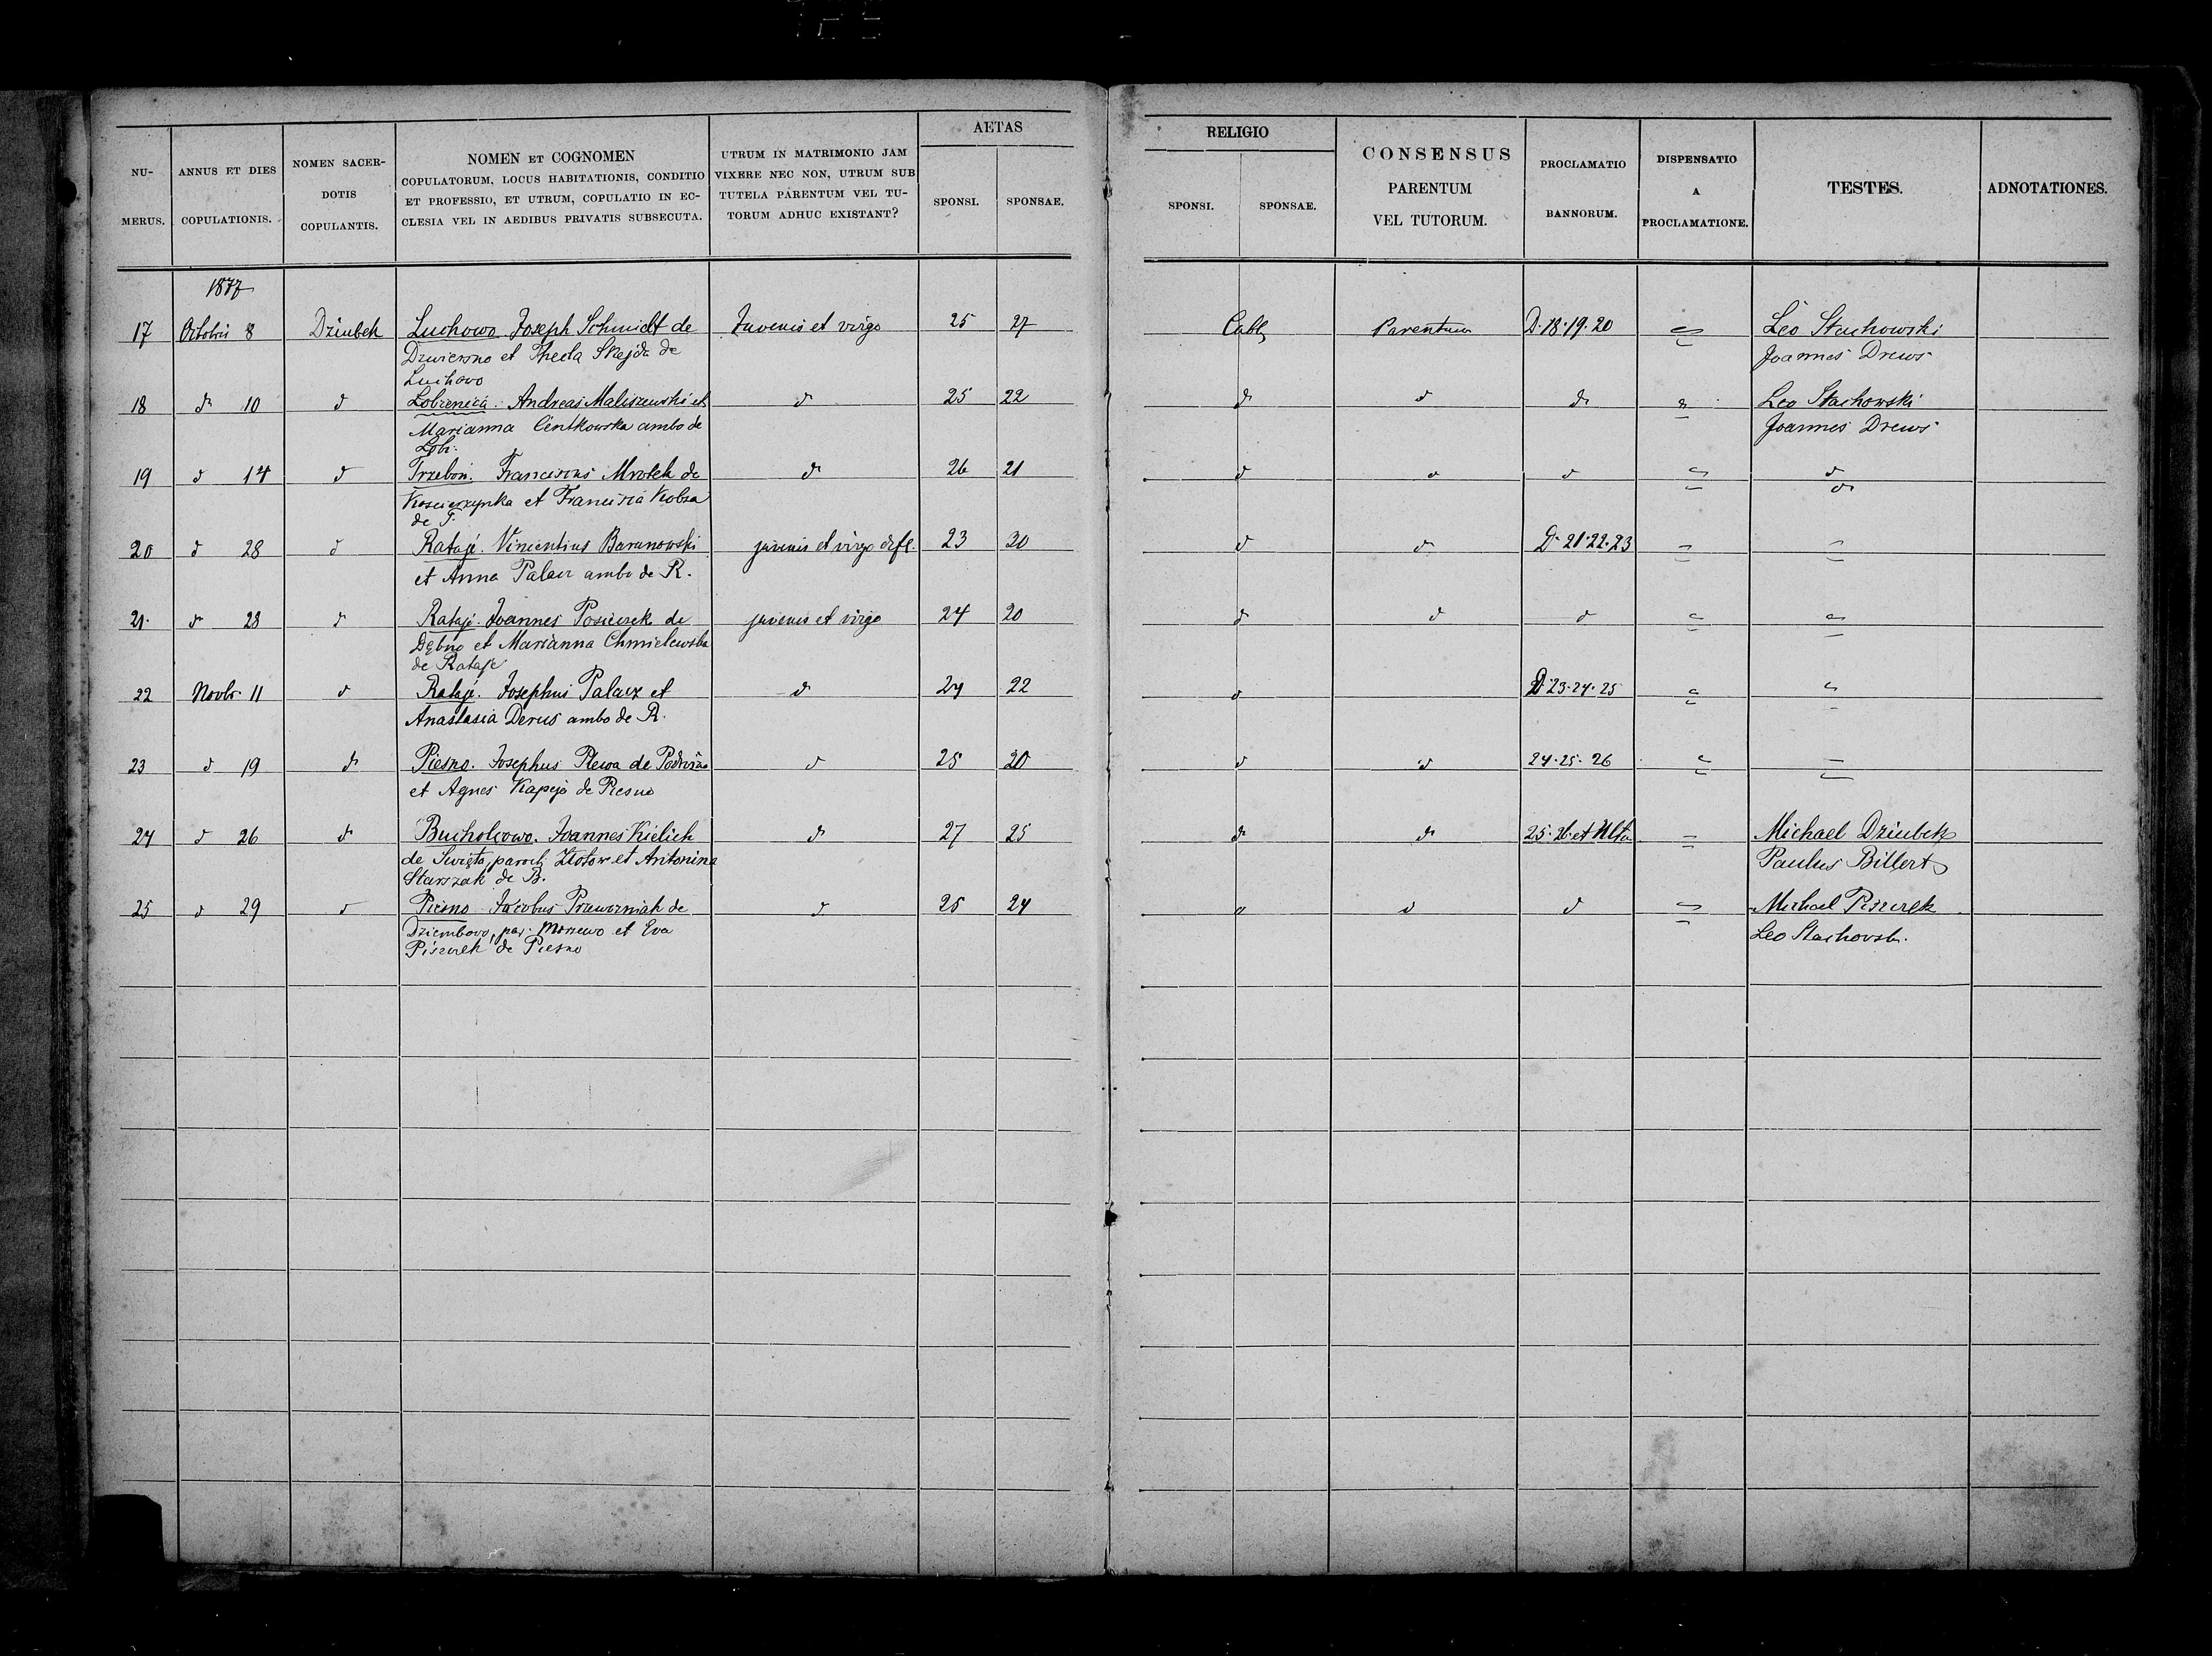 NU-
MERUS.
ANNUS ET DIES
COPULATIONIS.
NOMEN SACER-
DOTIS
COPULANTIS.
NOMEN ET COGNOMEN
COPULATORUM, LOCUS HABITATIONIS, CONDITIO
ET PROFESSIO, ET UTRUM, COPULATIO IN EC-
CLESIA VEL IN AEDIBUS PRIVATIS SUBSECUTA.
UTRUM IN MATRIMONIO JAM
VIXERE NEC NON, UTRUM SUB
TUTELA PARENTUM VEL TU-
TORUM ADHUC EXISTANT?
AETAS
SPONSI.
SPONSAE.
RELIGIO
SPONSI.
SPONSAE.
CONSENSUS
PARENTUM
VEL TUTORUM.
PROCLAMATIO
BANNORUM.
DISPENSATIO
A
PROCLAMATIONE.
TESTES.
ADNOTATIONES.
1877
17 Octobris 8 Dziubek Luchowo Joseph Schmidt de Juvenis et virgo 25 27 Cath Parentum D. 18. 19. 20 Leo Stachowski
Dzwierzno et Thecla Skejda de Joannes Drews
Luchowo
18 d 10 d Lobzenica. Andreas Maliszewski et d 25 22 d d d Leo Stachowski
Marianna Centkowska ambo de Joannes Drews
Lobz.
19 d 14 d Trzeboń. Franciscus Mrotek de d 26 21 d d d d
Koscierzynka et Francisca Kobza d
de T.
20 d 28 d Rataje. Vincentius Baranowski juvenis et virgo defl. 23 30 d d D. 21. 22. 23
et Anna Palacz ambo de R.
21. d 28 d Rataje. Joannes Posieczek de juvenis et virgo 24 20 d d d
Dębno et Marianna Chmielewska
de Rataje
22 Novbr 11 d Rataje. Josephus Palacz et d 24 22 d D. 23. 24. 25
Anastasia Derus ambo de R.
23 d 19 d Piesno. Josephus Plewa de d 25 20 d d 24. 25. 26
et Agnes Kapeja de Piesno
24 d 26 d Bucholcowo. Joannes Kielich d 27 25 d d 25. 26. et Ulta Michael Dziubek
de Swięta, paroch Złotow et Antonina Paulus Billert
Starszak de B.
25 d 29 d Piesno Jacobus Przewozniak de d 25 24 d d d Michael Piszczek
Dziembowo, par. Morzewo et Eva Leo Stachowski.
Piszczek de Piesno